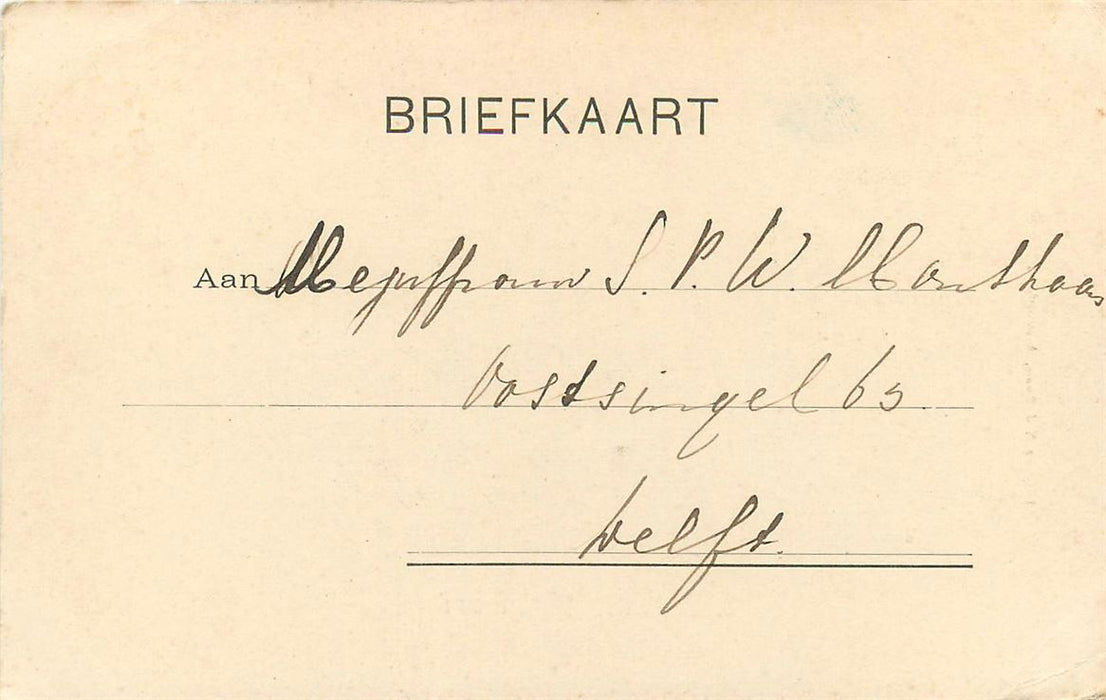 BRIEFKAART
Aan Mejuffrouw S. P. W. Monthaan
Oostsingel 63
Delft.